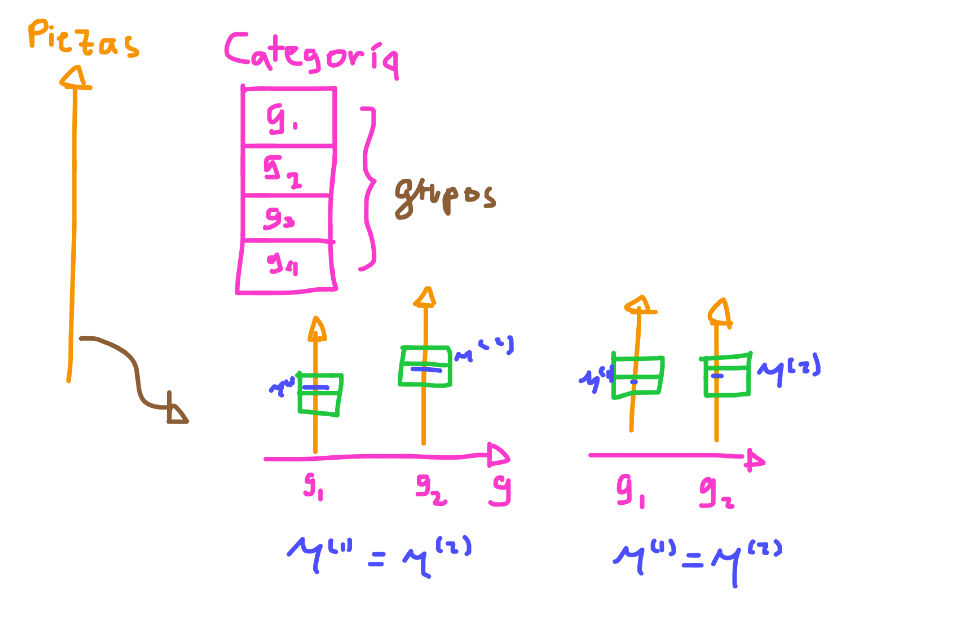 Piezas
Categoría
g₁
g₂
g₃
g₄
grupos
μ⁽¹⁾
μ⁽²⁾
g₁ g₂ g
μ⁽¹⁾ = μ⁽²⁾
μ⁽¹⁾
μ⁽²⁾
g₁ g₂
μ⁽¹⁾ = μ⁽²⁾